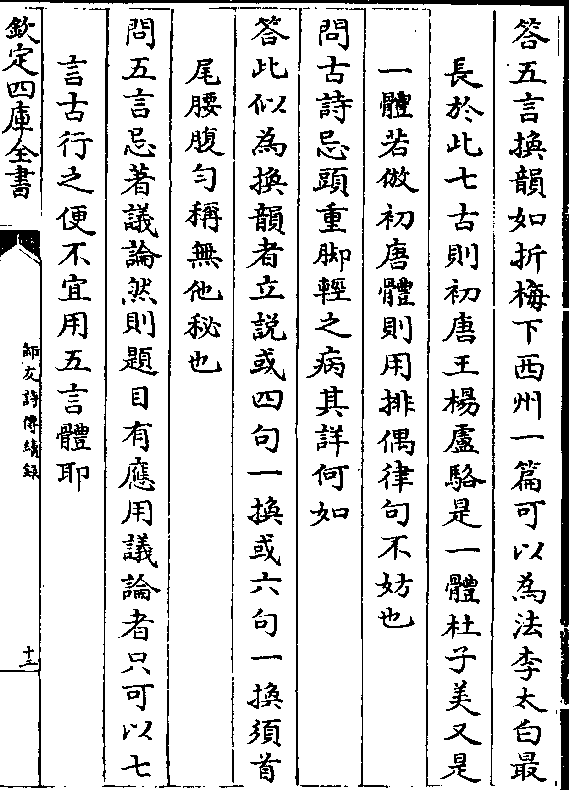 答五言換韻如折梅下西州一篇可以為法李太白最
長於此七古則初唐王楊盧駱是一體杜子美又是
一體若倣初唐體則用排偶律句不妨也
問古詩忌頭重脚輕之病其詳何如
答此似為換韻者立説或四句一換或六句一換須首
尾腰腹勻稱無他秘也
問五言忌著議論然則題目有應用議論者只可以七
言古行之便不宜用五言體耶
欽定四庫全書
師友詩傳續録
十二